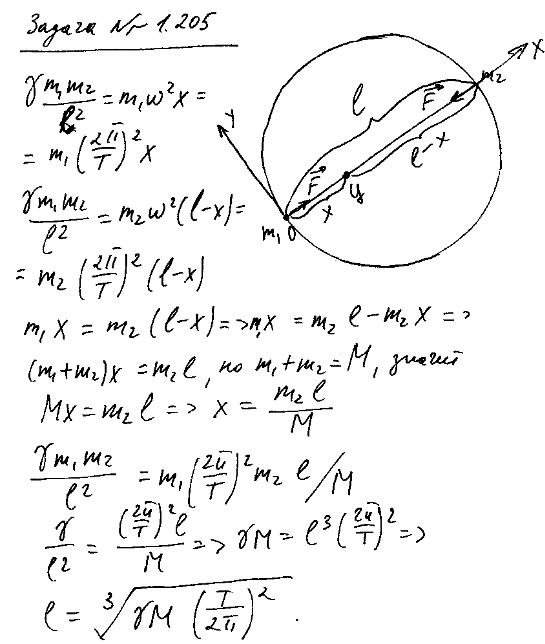 Задача № 1.205
γ m₁m₂/ℓ² = m₁ω²x =
= m₁(2π/T)²x
γ m₁m₂/ℓ² = m₂ω²(ℓ-x) =
= m₂(2π/T)²(ℓ-x)
m₁x = m₂(ℓ-x) => m₁x = m₂ℓ - m₂x =>
(m₁+m₂)x = m₂ℓ, но m₁+m₂ = M, значит
Mx = m₂ℓ => x = m₂ℓ/M
γ m₁m₂/ℓ² = m₁(2π/T)² m₂ ℓ/M
γ/ℓ² = (2π/T)²ℓ/M => γM = ℓ³(2π/T)² =>
ℓ = ∛(γM(T/2π)²).
X
Y
m₂
F
ℓ
ℓ-x
F
ц
x
m₁ O